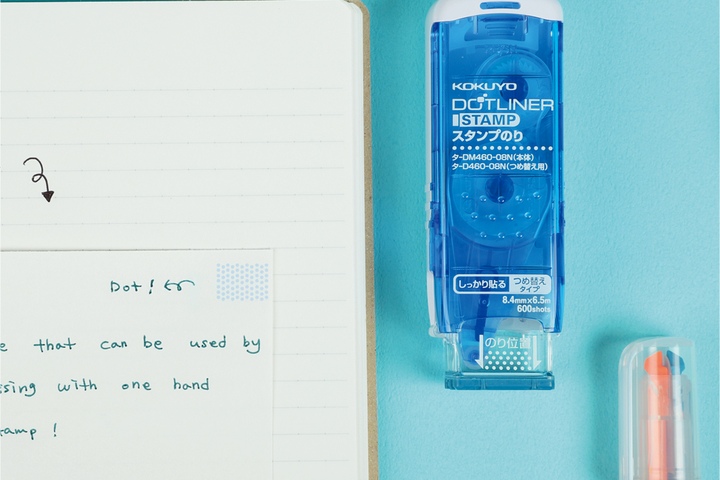 Dot!
e that can be used by
ssing with one hand
tamp !
KOKUYO
DOTLINER
STAMP
スタンプのり
タ-DM460-08N(本体)
タ-D460-08N(つめ替え用)
しっかり貼る つめ替え
タイプ
8.4mm×6.5m
600shots
のり位置